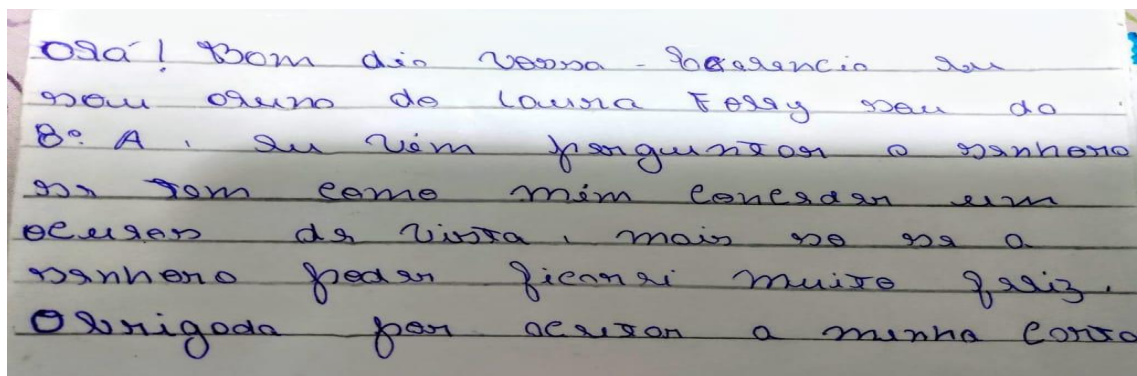 Olá! Bom dia vossa - Excelencia eu
sou aluna do Laura Ferry sou do
8º A. Eu vim perguntar a senhora
se tem como mim conceder um
oculos de vista, mais so se a
senhora poder ficarei muito feliz.
Obrigada por aceitar a minha carta